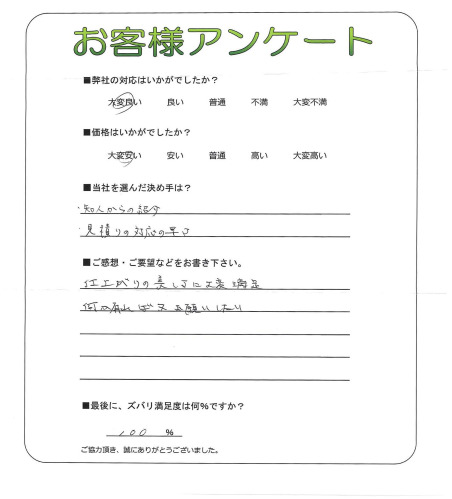 お客様アンケート
■弊社の対応はいかがでしたか？
大変良い 良い 普通 不満 大変不満
■価格はいかがでしたか？
大変安い 安い 普通 高い 大変高い
■当社を選んだ決め手は？
・知人からの紹介
・見積りの対応の早さ
■ご感想・ご要望などをお書き下さい。
仕上がりの美しさに大変満足
何か有れば又お願いしたい
■最後に、ズバリ満足度は何％ですか？
100 ％
ご協力頂き、誠にありがとうございました。